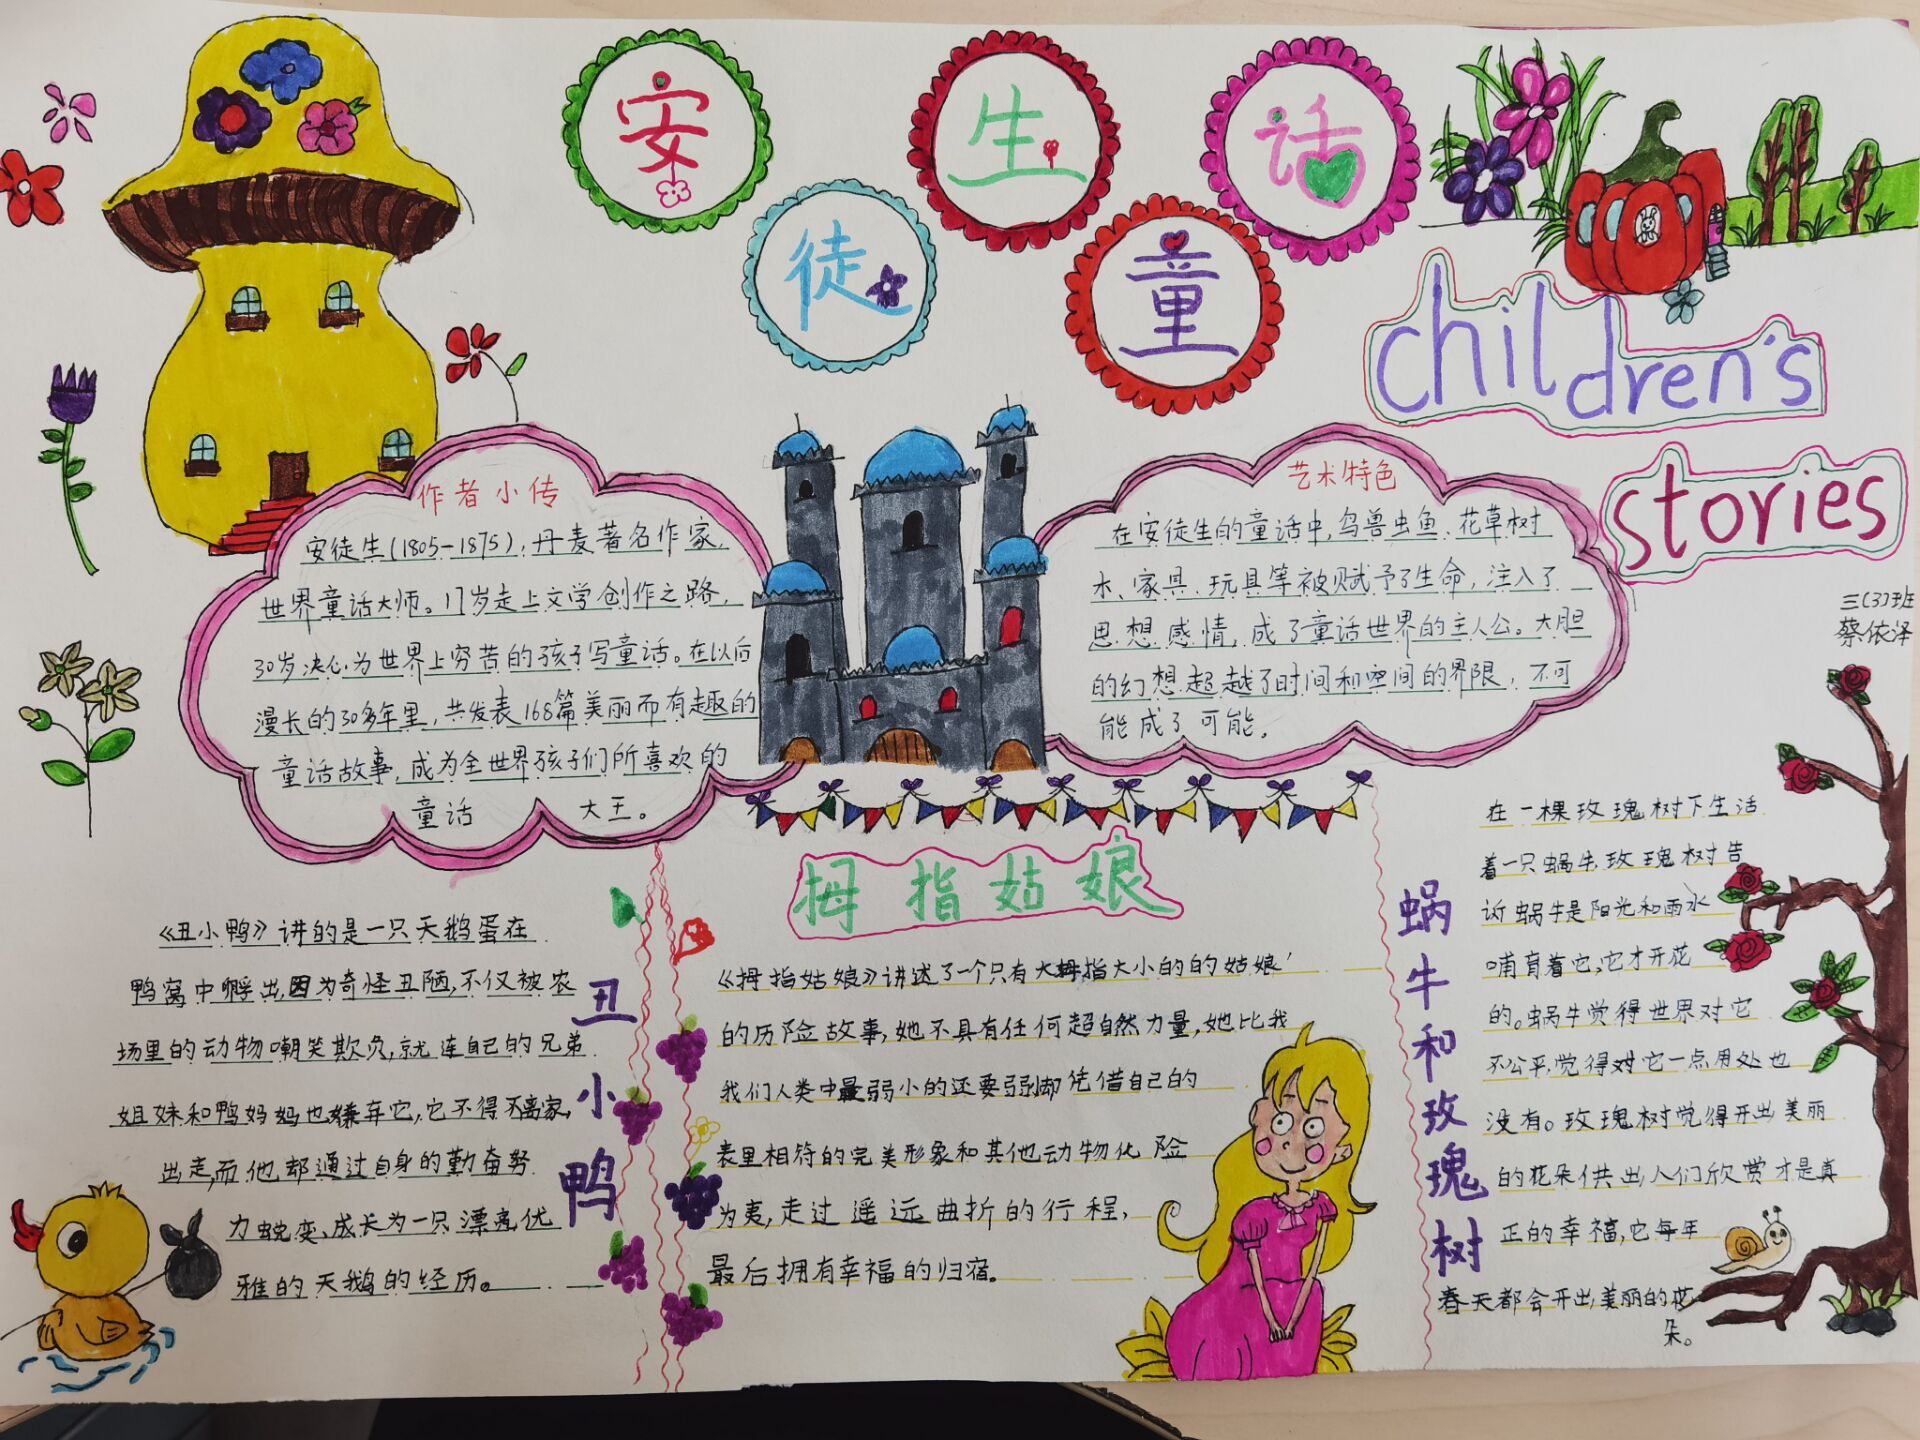 安徒生童话
children's
stories
三(3)班
蔡依泽
作者小传
安徒生(1805-1875),丹麦著名作家,
世界童话大师。17岁走上文学创作之路,
30岁决心为世界上穷苦的孩子写童话。在以后
漫长的30多年里,共发表168篇美丽而有趣的
童话故事,成为全世界孩子们所喜欢的
童话 大王。
艺术特色
在安徒生的童话中,鸟兽虫鱼、花草树
木、家具、玩具等被赋予了生命,注入了
思想感情,成了童话世界的主人公。大胆
的幻想超越了时间和空间的界限,不可
能成了可能。
丑小鸭
《丑小鸭》讲的是一只天鹅蛋在
鸭窝中孵出,因为奇怪丑陋,不仅被农
场里的动物嘲笑欺负,就连自己的兄弟
姐妹和鸭妈妈也嫌弃它,它不得不离家
出走,而他却通过自身的勤奋努
力蜕变、成长为一只漂亮优
雅的天鹅的经历。
拇指姑娘
《拇指姑娘》讲述了一个只有大拇指大小的的姑娘
的历险故事,她不具有任何超自然力量,她比我
我们人类中最弱小的还要弱,却凭借自己的
表里相符的完美形象和其他动物化险
为夷,走过遥远曲折的行程,
最后拥有幸福的归宿。
蜗牛和玫瑰树
在一棵玫瑰树下生活
着一只蜗牛,玫瑰树告
诉蜗牛是阳光和雨水
哺育着它,它才开花
的。蜗牛觉得世界对它
不公平,觉得对它一点用处也
没有。玫瑰树觉得开出美丽
的花朵供出人们欣赏才是真
正的幸福,它每年
春天都会开出美丽的花
朵。